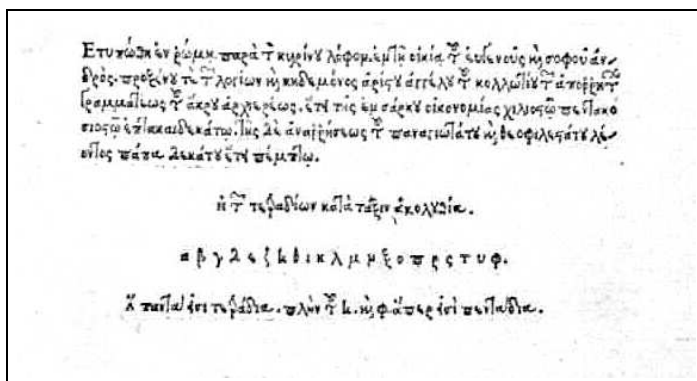 Ἐτυπώθη ἐν ῥώμῃ. παρὰ τῷ κυρίνου λόφῳ. ἐν τῇ οἰκίᾳ τοῦ εὐγενοῦς καὶ σοφοῦ ἀν-
δρός. προξένου τε τῶν λογίων καὶ κηδεμόνος ἀρίστου ἀγγέλου τοῦ κολλωτίου τῶν ἀπορρήτων
γραμματέως τοῦ ἄκρου ἀρχιερέως. ἔτει τῆς ἐνσάρκου οἰκονομίας χιλιοστῷ πεντακο
σιοστῷ ἑπτακαιδεκάτῳ. τῆς δὲ ἀναρρήσεως τοῦ παναγιωτάτου καὶ θεοφιλεστάτου λέ-
οντος πάπα δεκάτου ἔτει πέμπτῳ.
ἡ τῶν τετραδίων κατὰ τάξιν ἀκολουθία.
α β γ δ ε ζ η θ ι κ λ μ ν ξ ο π ρ ς τ υ φ.
ἃ πάντα εἰσὶ τετράδια. πλὴν τοῦ η. καὶ φ ἅπερ εἰσὶ πεντάδια.